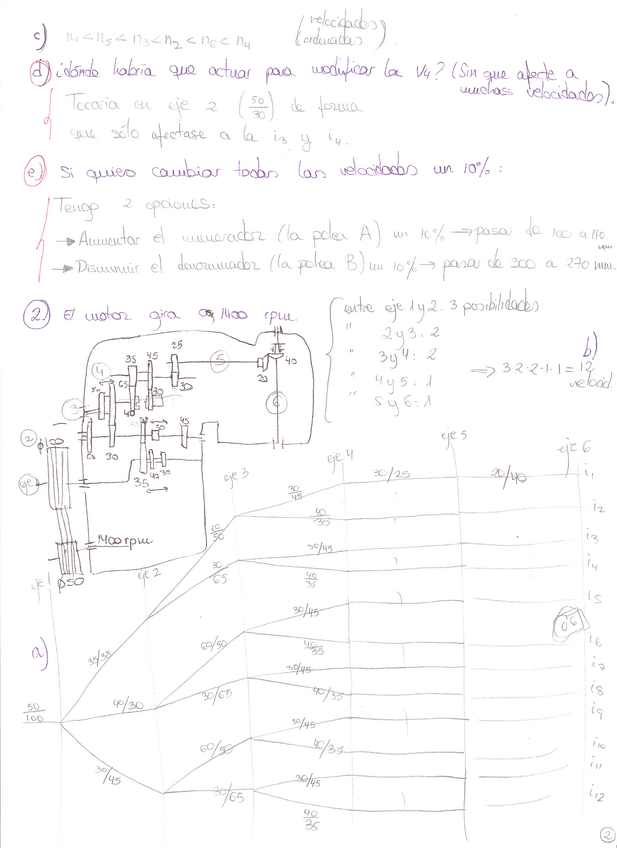 c) n1 < n5 < n3 < n2 < n6 < n4 (velocidades ordenadas)
d) ¿dónde habría que actuar para modificar la V4? (Sin que afecte a muchas velocidades).
Tocaría en eje 2 (50/30) de forma
que sólo afectase a la i3 y i4.
e) Si quiero cambiar todas las velocidades un 10%:
Tengo 2 opciones:
→ Aumentar el numerador (la polea A) un 10% → pasa de 100 a 110 mm
→ Disminuir el denominador (la polea B) un 10% → pasa de 300 a 270 mm.
2. El motor gira a 1400 rpm.
entre eje 1 y 2: 3 posibilidades
" 2 y 3: 2
" 3 y 4: 2
" 4 y 5: 1
" 5 y 6: 1
b)
⇒ 3·2·2·1·1 = 12
velocid.
25
35 45
5
20 40
4
50 65 30
3 40 30
6
2 φ100
60 30 30 45
35 40 30
eje
1400 rpm
eje 1 φ50
eje 2
eje 3
eje 4
eje 5
eje 6
a)
50/100
30/35
40/30
30/45
60/50
30/65
60/50
30/65
60/50
30/65
30/45 30/25 20/40 i1
40/35 i2
30/45 i3
40/35 i4
30/45 i5
06
40/35 i6
30/45 i7
40/35 i8
30/45 i9
40/35 i10
30/45 i11
40/35 i12
2